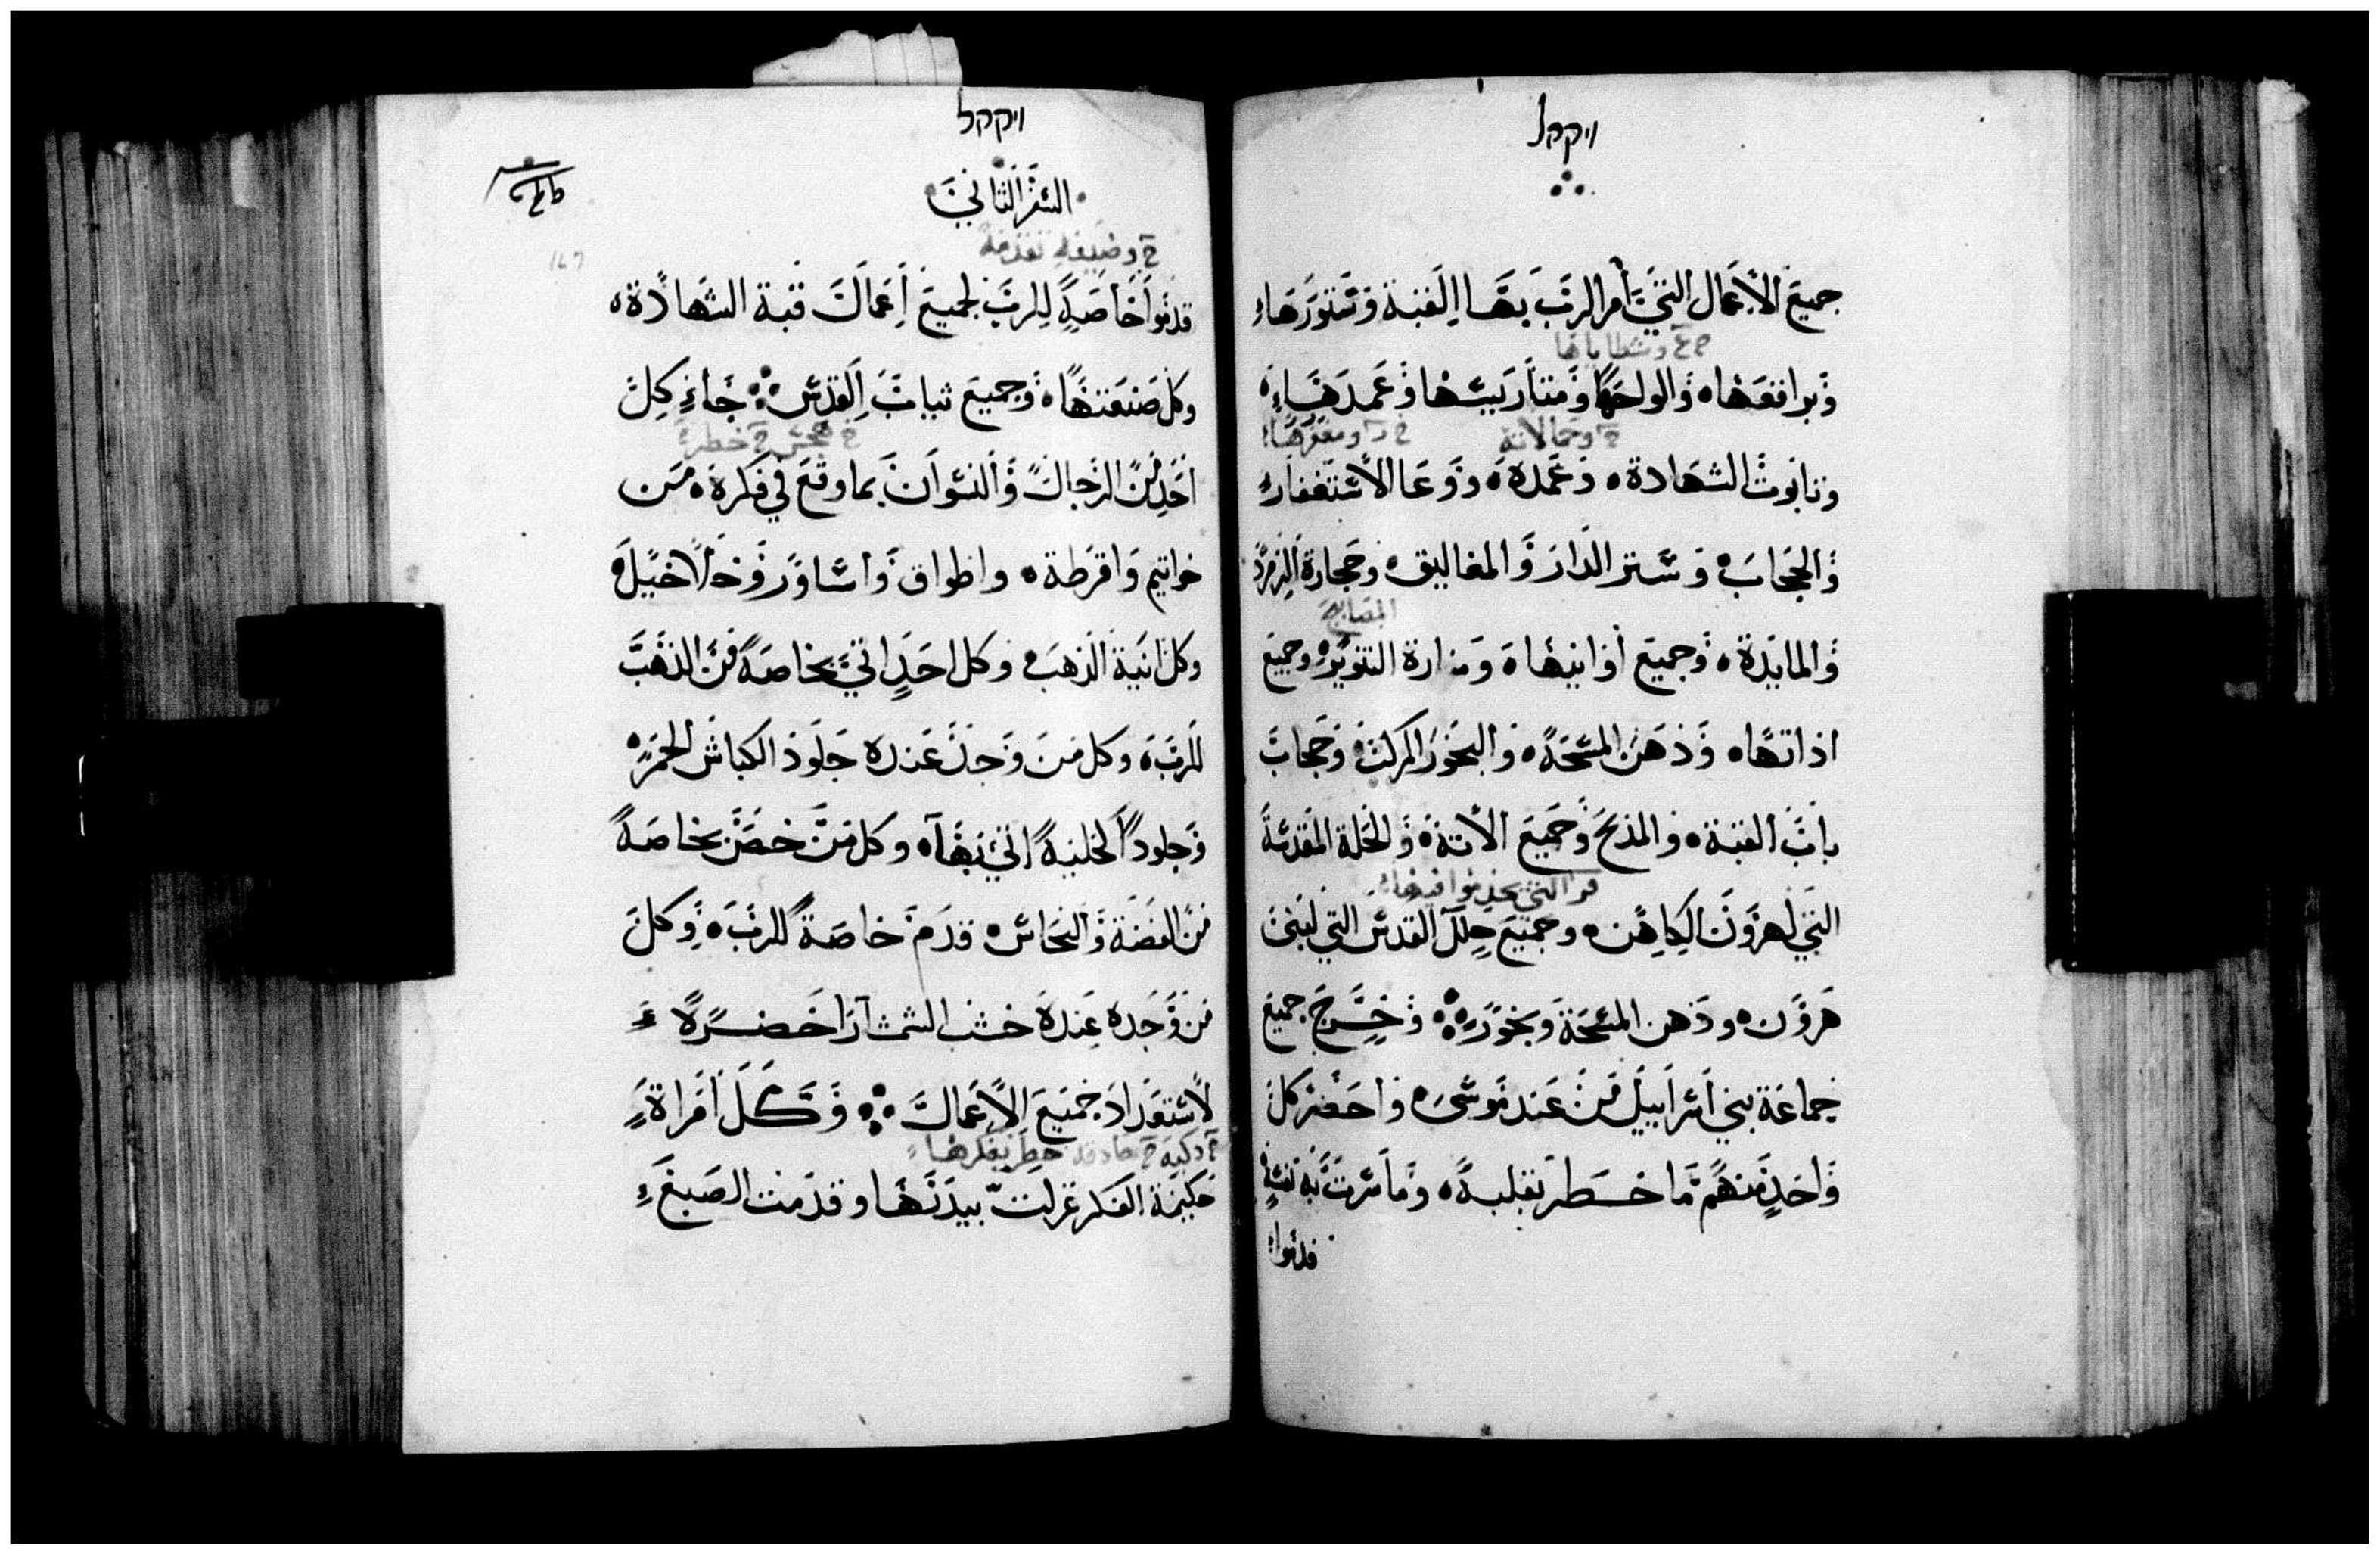 ויקהל
جميع الأعمال التي أمر الرب بها القبة وستورها
وشظاياها
وبراقعها والواحها ومتاريسها وعمدها
وحمالاته
وتابوت الشهادة وعمده ووعا الاستغفار
والحجاب وستر الدار والمغاليق وحجارة الزمرد
المصابيح
والمايدة وجميع أوانيها ومنارة التنوير وجميع
اداتها ودهن المسحة والبخور المركب وحجاب
باب القبة والمذبح وجميع الاته والحلة المقدسة
التي يخدموا فيها
التي لهرون الكاهن وجميع حلل القدس التي لبني
هرون ودهن المسحة وبخور وخرج جميع
جماعة بني اسراييل من عند موسى واحضر كل
واحد منهم ما خطر بقلبه وما سرت به نفسه
قدموا
ויקהל
السفر الثاني
قدموا خاصة للرب لجميع أعمال قبة الشهادة
وكل صنعتها وجميع ثياب القدس جاء كل
احد من الرجال والنسوان بما وقع في فكره من
خواتيم واقرطة واطواق واساور وخلاخيل
وكل انية الذهب وكل احد اتي بخاصة من الذهب
للرب وكل من وجد عنده جلود الكباش الحمر
وجلود اتي بها وكل من خص بخاصة
من الفضة والنحاس قدم خاصة للرب وكل
من وجده عنده خشب الشمشار احضره
لاستعداد جميع الأعمال وكل امراة
حكيمة الفكر غزلت بيدها وقدمت الصبغ